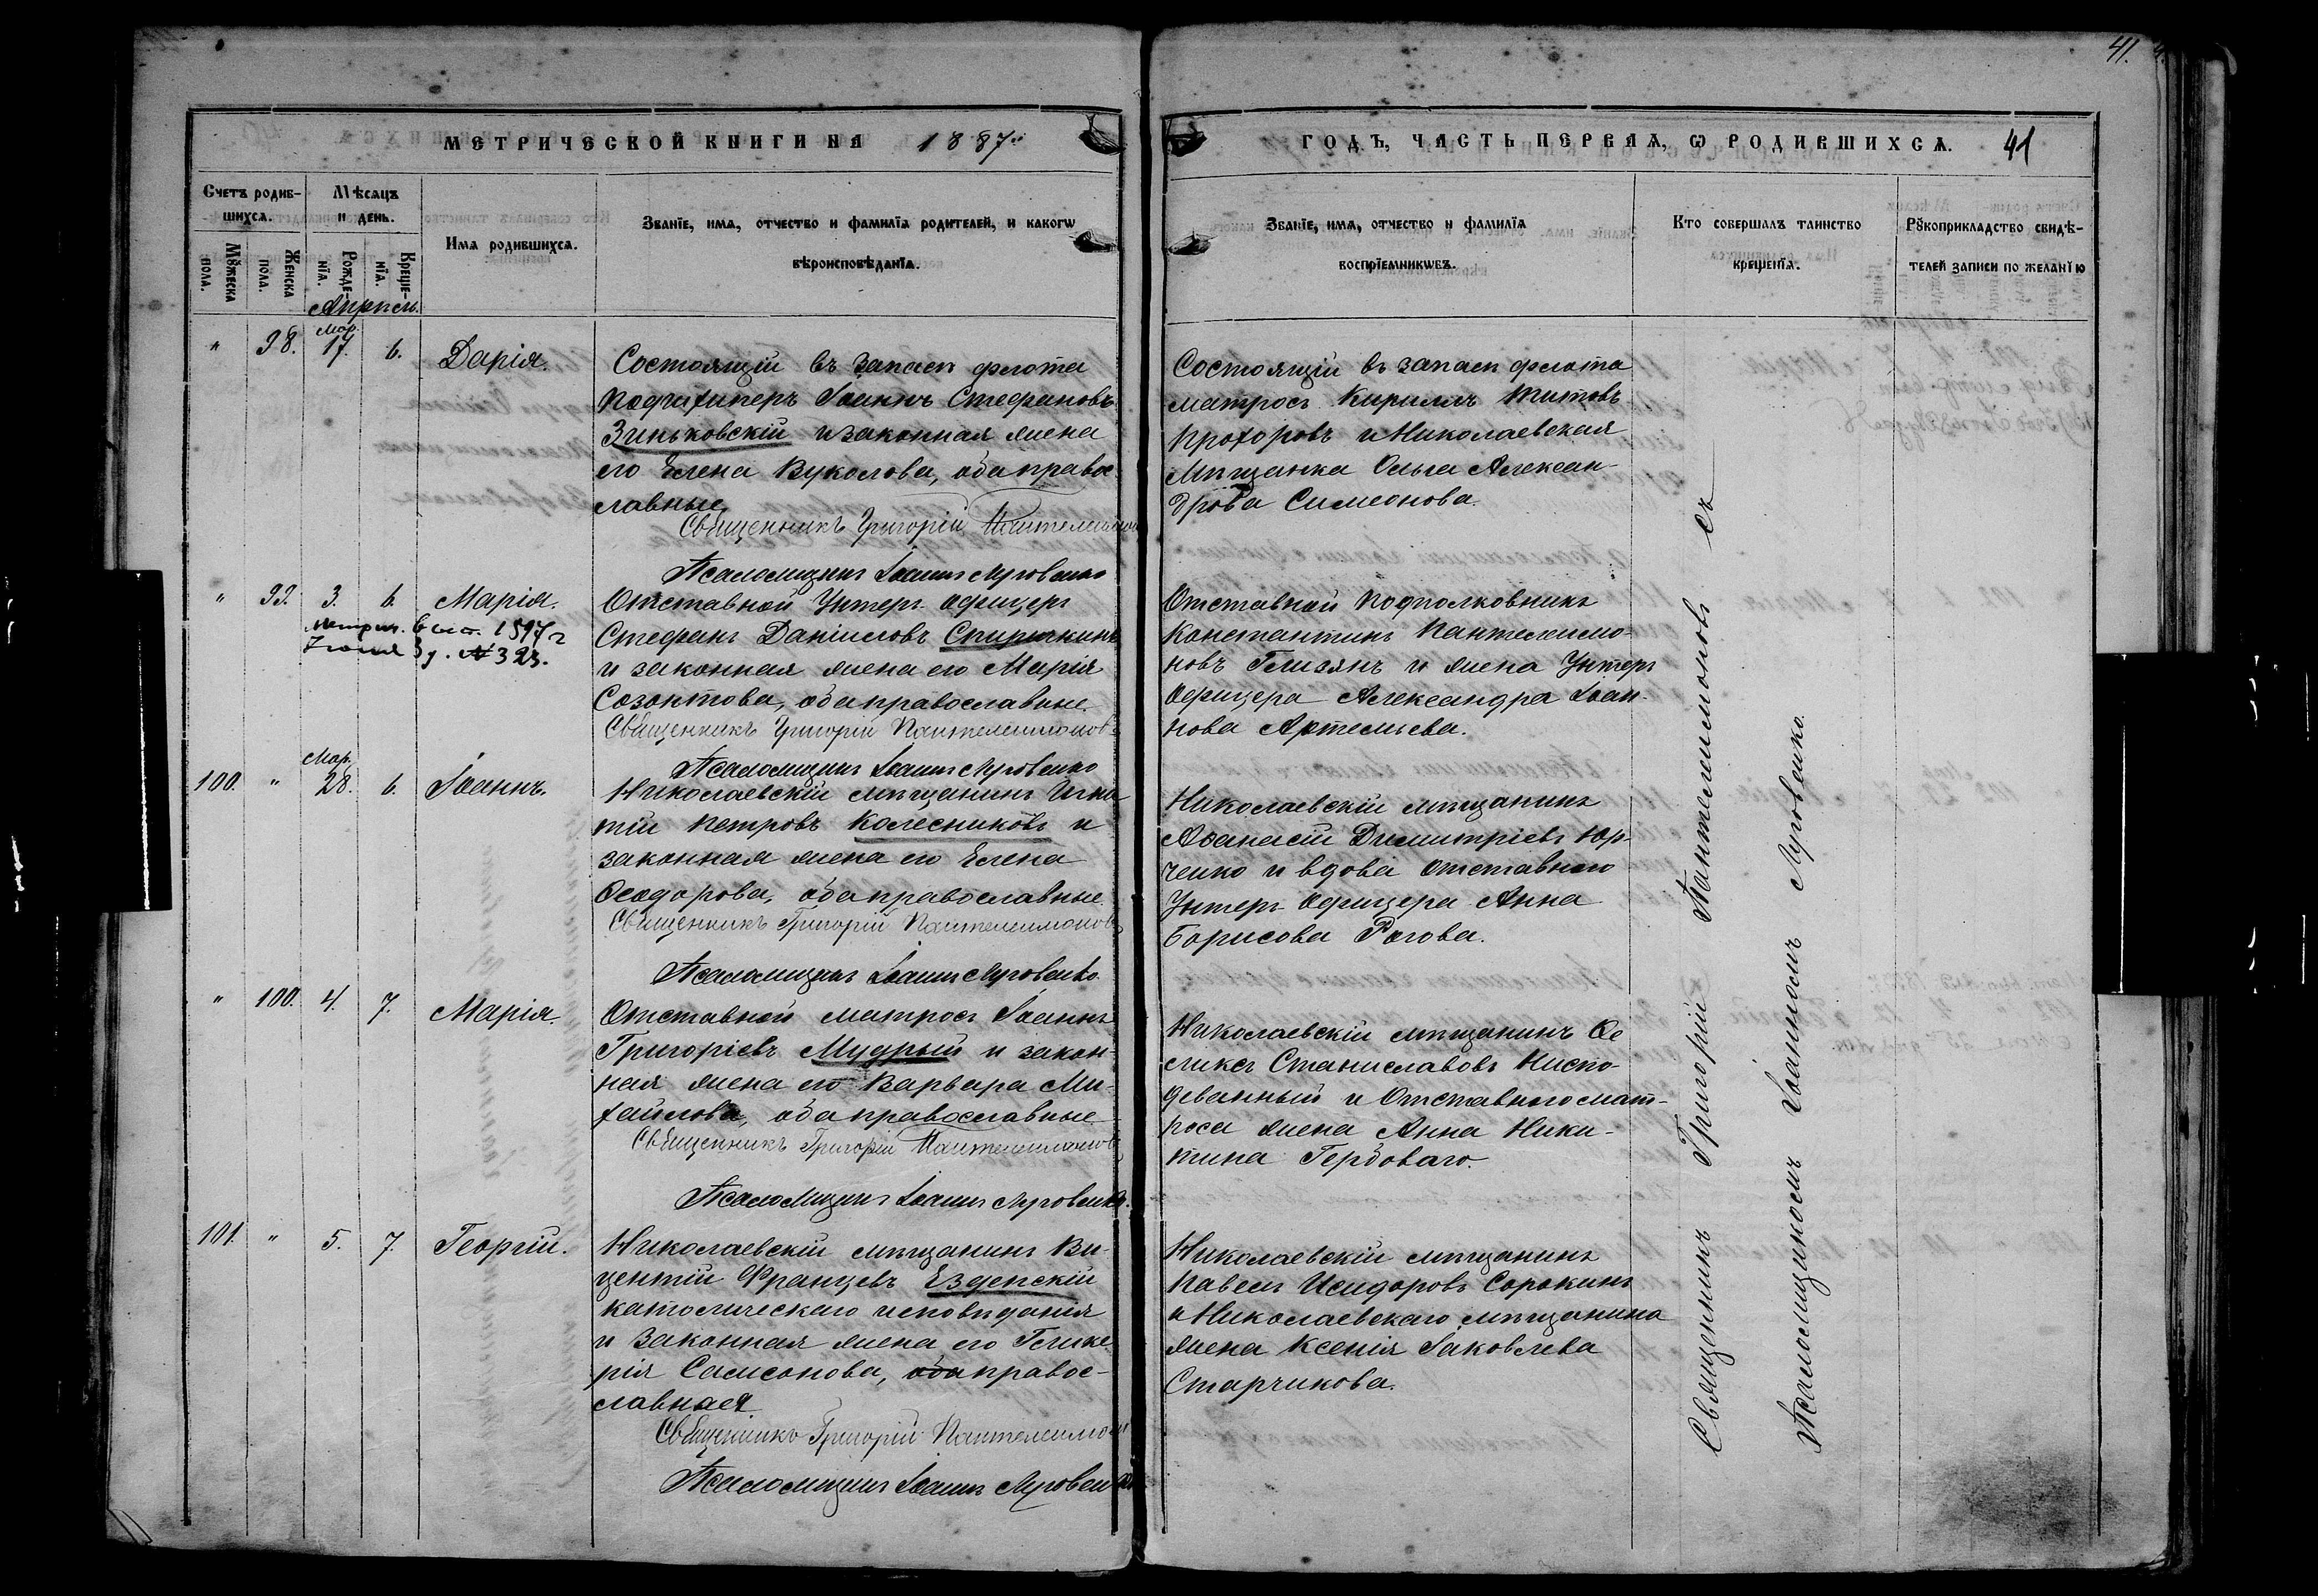 41.
МЕТРИЧЕСКОЙ КНИГИ НА 1887й
ГОДЪ, ЧАСТЬ ПЕРВАѦ, Ѡ РОДИВШИХСѦ. 41
Счетъ родив-
шихсѧ.
Мѣсѧцъ
и день.
Мꙋжеска пола.
Женска пола.
Рожде-
нїѧ.
Креще-
нїѧ.
Имѧ родившихсѧ.
Званїе, имѧ, отчество и фамилїѧ родителей, и какогѡ
вѣроисповѣданїѧ.
Званїе, имѧ, отчество и фамилїѧ
воспрїемникѡвъ.
Кто совершалъ таинство
крещенїѧ.
Рꙋкоприкладство свидѣ-
телей записи по желанїю
Апрѣль.
" 98. Мар. 17. 6. Дарія.
Состоящій въ запасѣ флота
Подшкиперъ Іоаннъ Стефановъ
Зиньковскій и законная жена
его Елена Вуколова, оба право-
славные
Священникъ Григорій Пантелеимонов
Псаломщикъ Іоаннъ Луговенко
Состоящій въ запасѣ флота
матросъ Кириллъ Титовъ
Прохоровъ и Николаевская
Мѣщанка Ольга Алексан-
дрова Симеонова.
" 99. 3. 6. Марія.
Метрич. выст. 1897 г
Іюня 3 д. № 323.
Отставной Унтеръ офицеръ
Стефанъ Даніиловъ Спиричкинъ
и законная жена его Марія
Созонтова, оба православные.
Священникъ Григорій Пантелеимоновъ
Псаломщикъ Іоаннъ Луговенко
Отставной подполковникъ
Константинъ Пантелеимо-
новъ Глизянъ и жена Унтеръ
Офицера Александра Іоан-
нова Артемьева.
100. " Мар. 28. 6. Іоаннъ.
Николаевскій мѣщанинъ Игна
тій Петровъ Колесниковъ и
законная жена его Елена
Ѳеодорова, оба православные
Священникъ Григорій Пантелеимоновъ
Псаломщикъ Іоаннъ Луговенко.
Николаевскій мѣщанинъ
Аѳанасій Димитріевъ Юр-
ченко и вдова отставного
Унтеръ Офицера Анна
Борисова Рогова.
" 100. 4. 7. Марія.
Отставной матросъ Іоаннъ
Григоріевъ Мудрый и закон-
ная жена его Варвара Ми-
хайлова, оба православные
Священникъ Григорій Пантелеимоновъ
Псаломщикъ Іоаннъ Луговенко.
Николаевскій мѣщанинъ Ѳе
ликсъ СтаниславовъНиспо-
деванный и Отставного мат-
роса жена Анна Ники-
тина Гербоваго.
101. " 5. 7. Георгій.
Николаевскій мѣщанинъ Ви-
центій Францевъ Ездепскій
католическаго исповѣданія
и законная жена его Глике
рія Самсонова, оба правос-
лавная
Священникъ Григорій Пантелеимон
Псаломщикъ Іоаннъ Луговенко
Николаевскій мѣщанинъ
Павелъ Исидоровъ Сорокинъ
и Николаевскаго мѣщанина
жена Ксенія Іаковлева
Старчикова.
Священникъ Григорій Пантелеимоновъ съ
Псаломщикомъ Іоанномъ Луговенко.